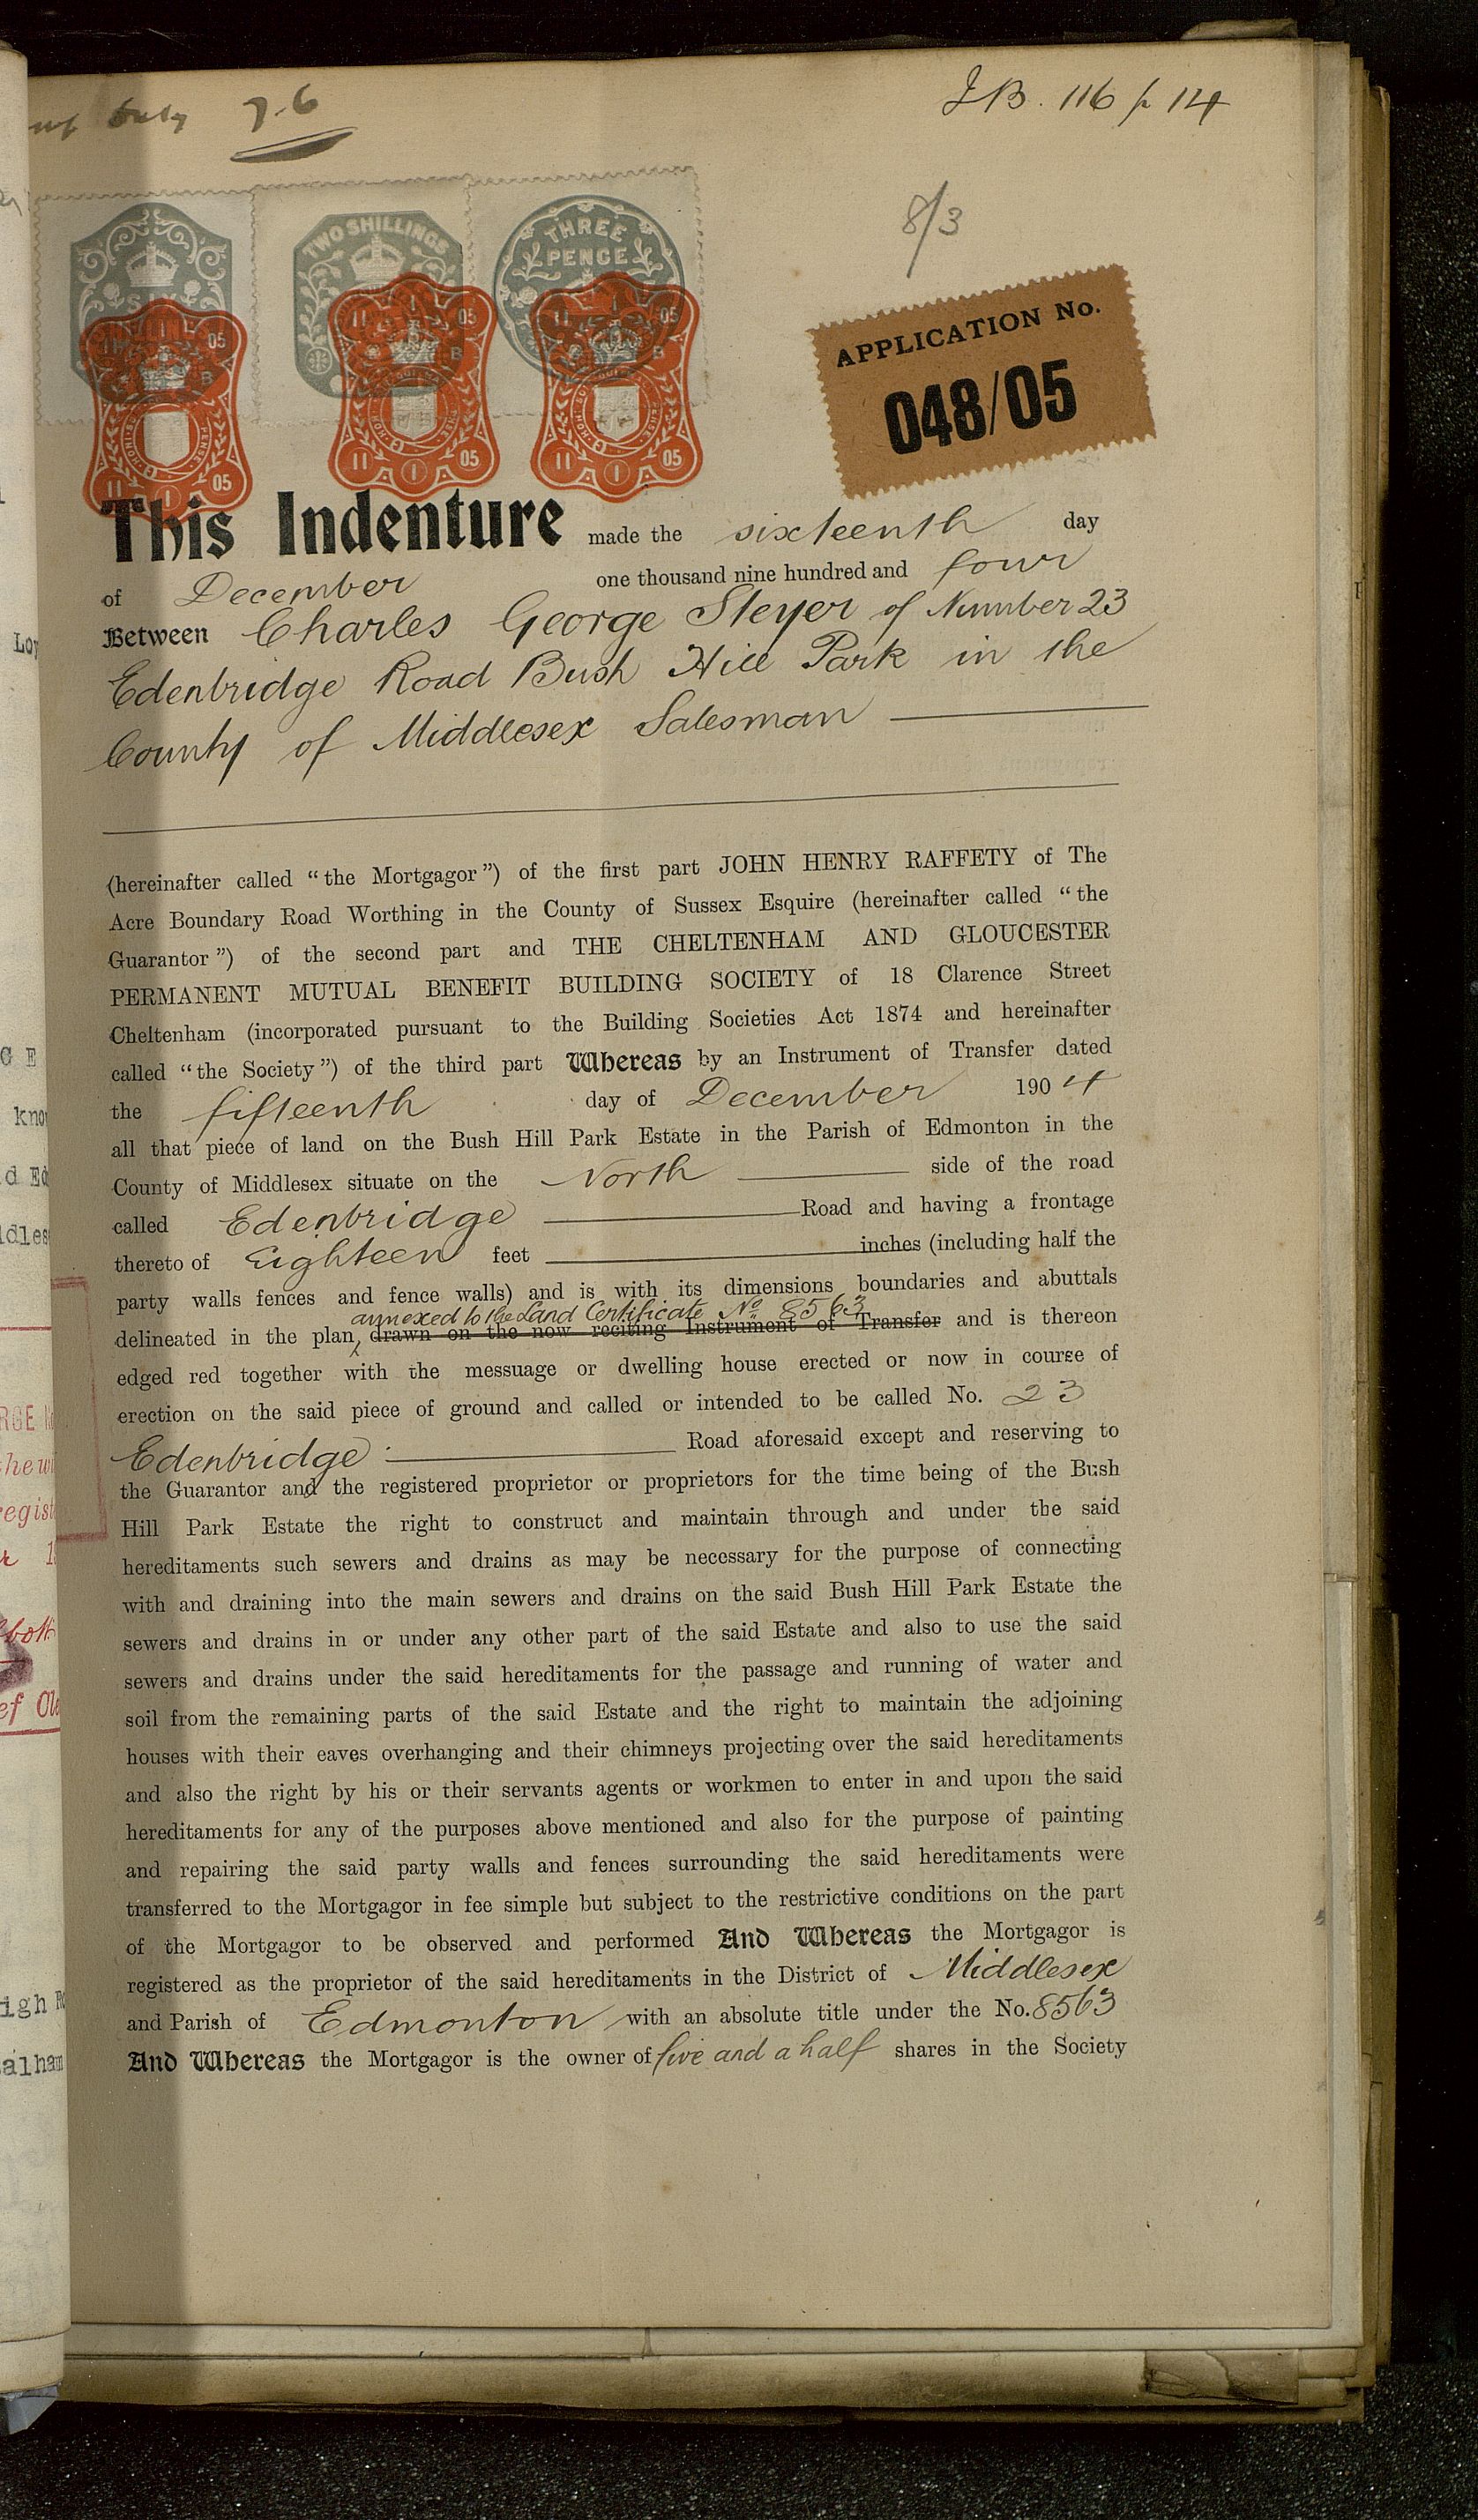 7.6
J.B. 116 p 14
8/3
TWO SHILLINGS
THREE
PENCE
11 05
11 05
11 05
11 1 05
11 1 05
APPLICATION No.
048/05
This Indenture made the sixteenth day
of December one thousand nine hundred and four
Between Charles George Steyer of Number 23
Edenbridge Road Bush Hill Park in the
County of Middlesex Salesman
(hereinafter called "the Mortgagor") of the first part JOHN HENRY RAFFETY of The
Acre Boundary Road Worthing in the County of Sussex Esquire (hereinafter called "the
Guarantor") of the second part and THE CHELTENHAM AND GLOUCESTER
PERMANENT MUTUAL BENEFIT BUILDING SOCIETY of 18 Clarence Street
Cheltenham (incorporated pursuant to the Building Societies Act 1874 and hereinafter
called "the Society") of the third part Whereas by an Instrument of Transfer dated
the fifteenth day of December 1904
all that piece of land on the Bush Hill Park Estate in the Parish of Edmonton in the
County of Middlesex situate on the North side of the road
called Edenbridge Road and having a frontage
thereto of Eighteen feet inches (including half the
party walls fences and fence walls) and is with its dimensions boundaries and abuttals
annexed to the Land Certificate No. 8563
delineated in the plan drawn on the now reciting Instrument of Transfer and is thereon
edged red together with the messuage or dwelling house erected or now in course of
erection on the said piece of ground and called or intended to be called No. 23
Edenbridge Road aforesaid except and reserving to
the Guarantor and the registered proprietor or proprietors for the time being of the Bush
Hill Park Estate the right to construct and maintain through and under the said
hereditaments such sewers and drains as may be necessary for the purpose of connecting
with and draining into the main sewers and drains on the said Bush Hill Park Estate the
sewers and drains in or under any other part of the said Estate and also to use the said
sewers and drains under the said hereditaments for the passage and running of water and
soil from the remaining parts of the said Estate and the right to maintain the adjoining
houses with their eaves overhanging and their chimneys projecting over the said hereditaments
and also the right by his or their servants agents or workmen to enter in and upon the said
hereditaments for any of the purposes above mentioned and also for the purpose of painting
and repairing the said party walls and fences surrounding the said hereditaments were
transferred to the Mortgagor in fee simple but subject to the restrictive conditions on the part
of the Mortgagor to be observed and performed And Whereas the Mortgagor is
registered as the proprietor of the said hereditaments in the District of Middlesex
and Parish of Edmonton with an absolute title under the No. 8563
And Whereas the Mortgagor is the owner of five and a half shares in the Society